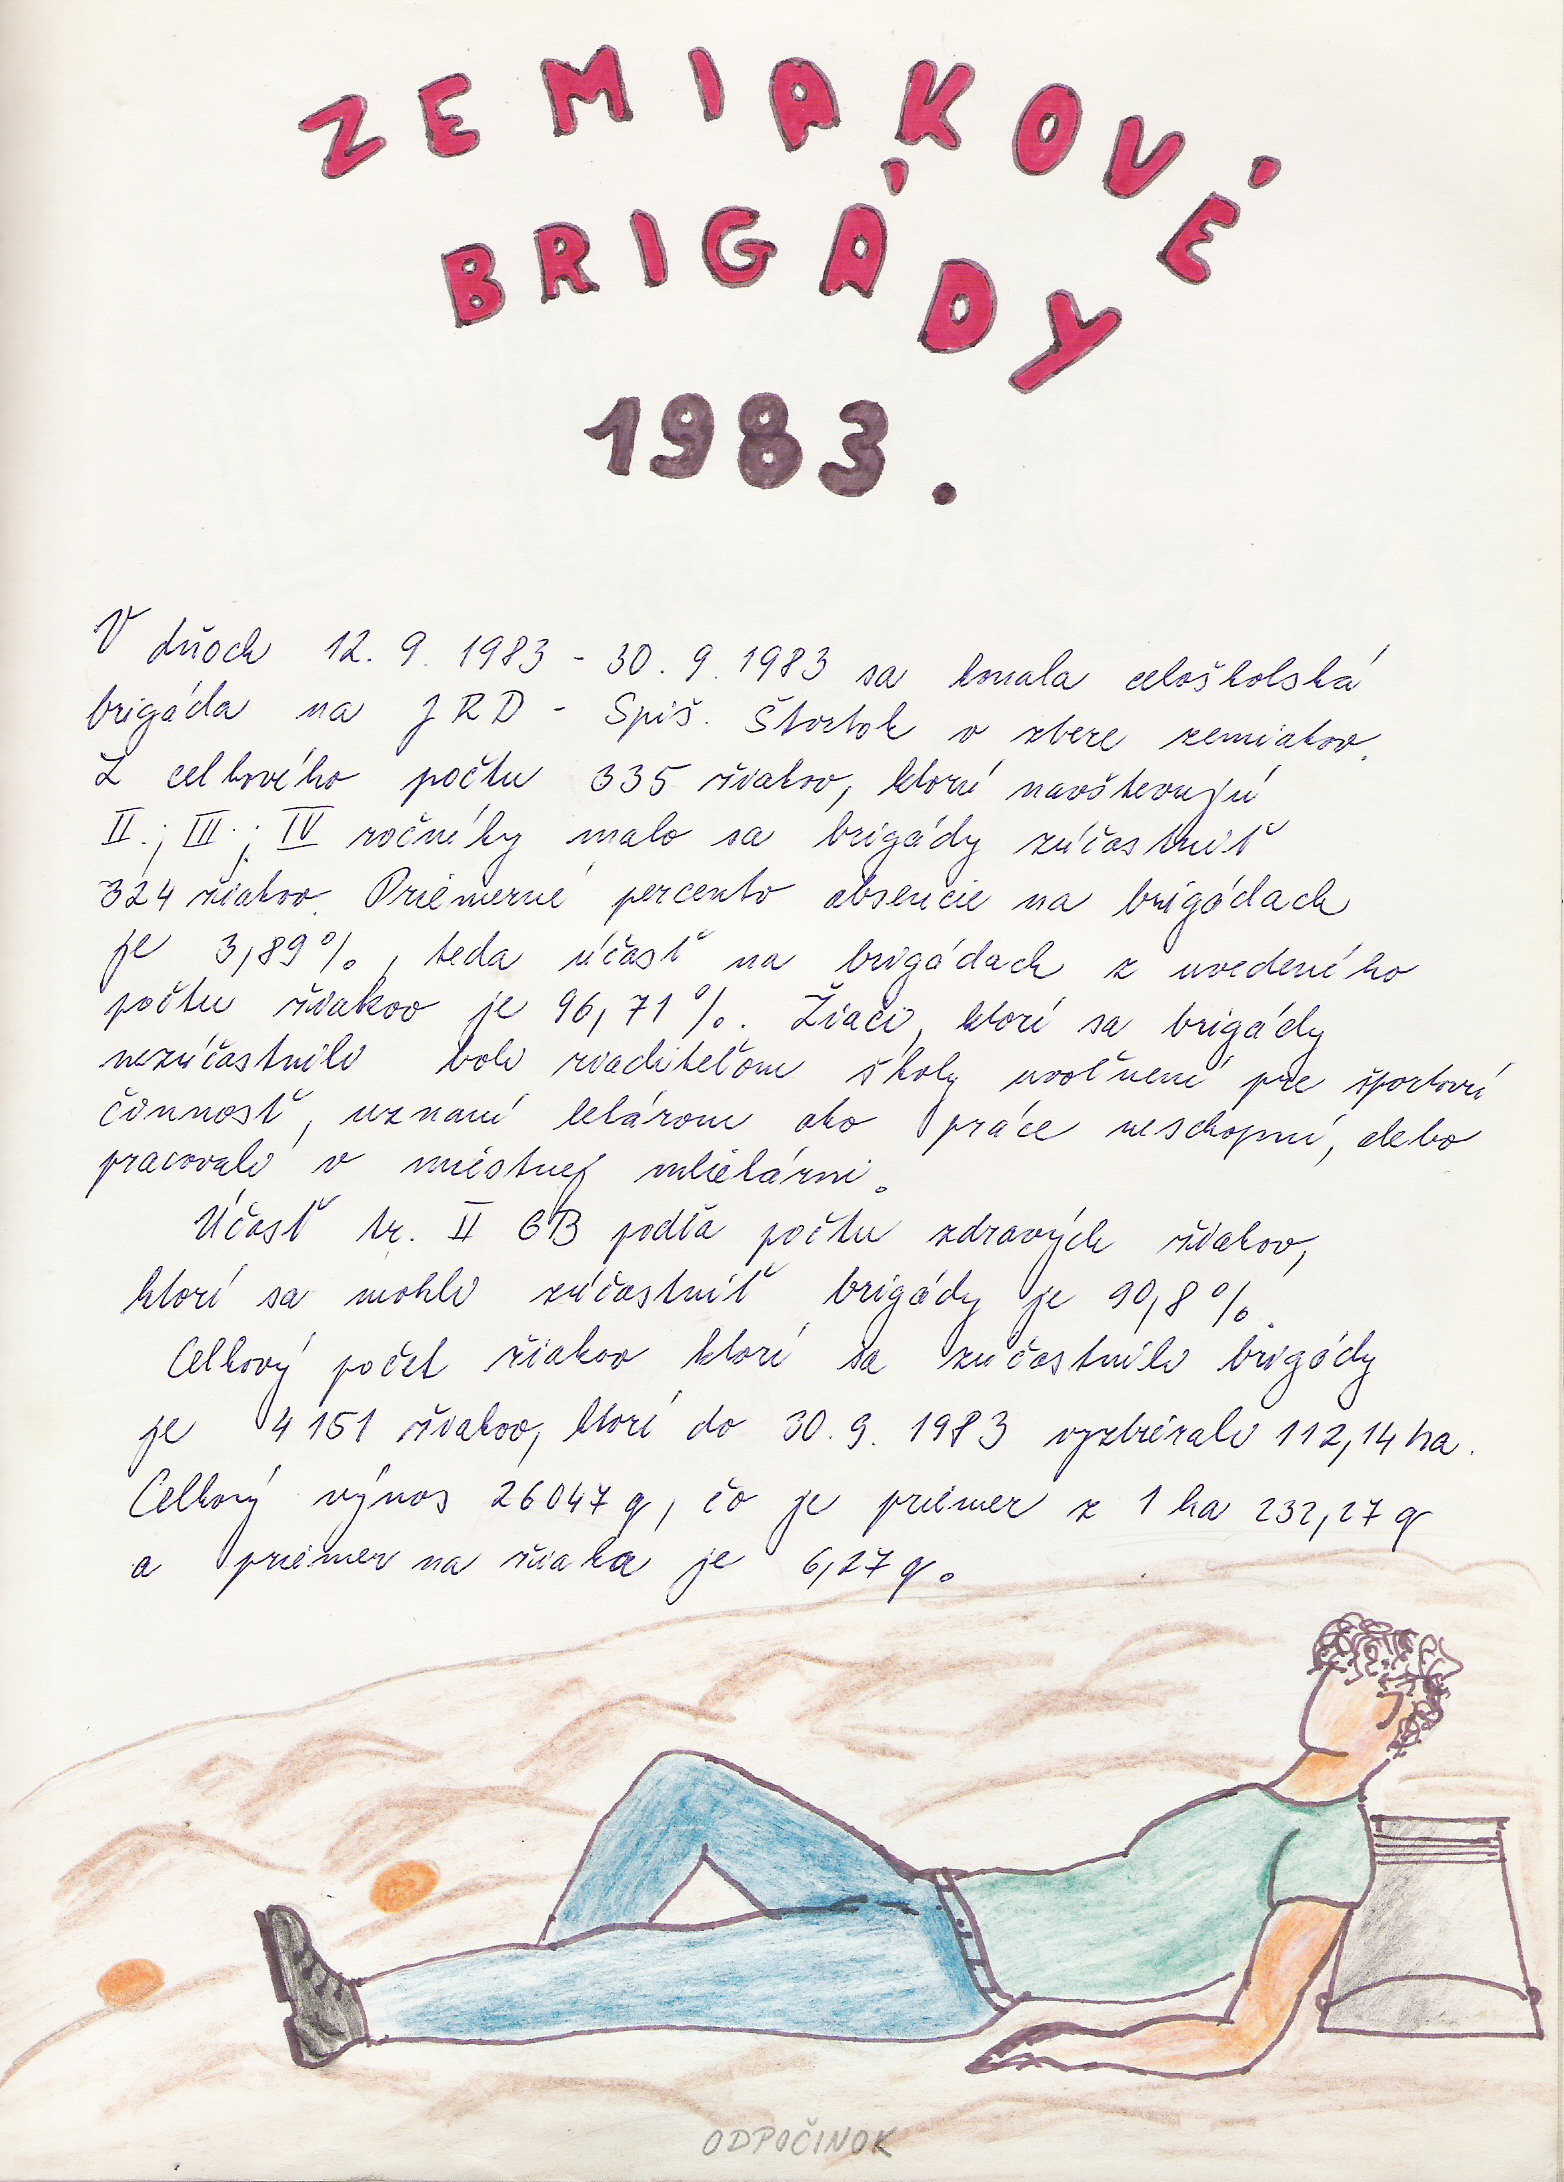 ZEMIAKOVÉ
BRIGÁDY
1983.
V dňoch 12. 9. 1983 - 30. 9. 1983 sa konala celoškolská
brigáda na JRD - Spiš. Štvrtok v zbere zemiakov.
Z celkového počtu 335 žiakov, ktorí navštevujú
II.; III.; IV ročníky malo sa brigády zúčastniť
324 žiakov. Priemerné percento absencie na brigádach
je 3,89%, teda účasť na brigádach z uvedeného
počtu žiakov je 96,71%. Žiaci, ktorí sa brigády
nezúčastnili boli riaditeľom školy uvoľnení pre športovú
činnosť, uznaní lekárom ako práce neschopní, alebo
pracovali v miestnej mliekárni.
Účasť tr. II GB podľa počtu zdravých žiakov,
ktorí sa mohli zúčastniť brigády je 90,8%.
Celkový počet žiakov ktorí sa zúčastnili brigády
je 4151 žiakov, ktorí do 30. 9. 1983 vyzbierali 112,14 ha.
Celkový výnos 26047 q, čo je priemer z 1 ha 232,27 q
a priemer na žiaka je 6,27 q.
ODPOČINOK